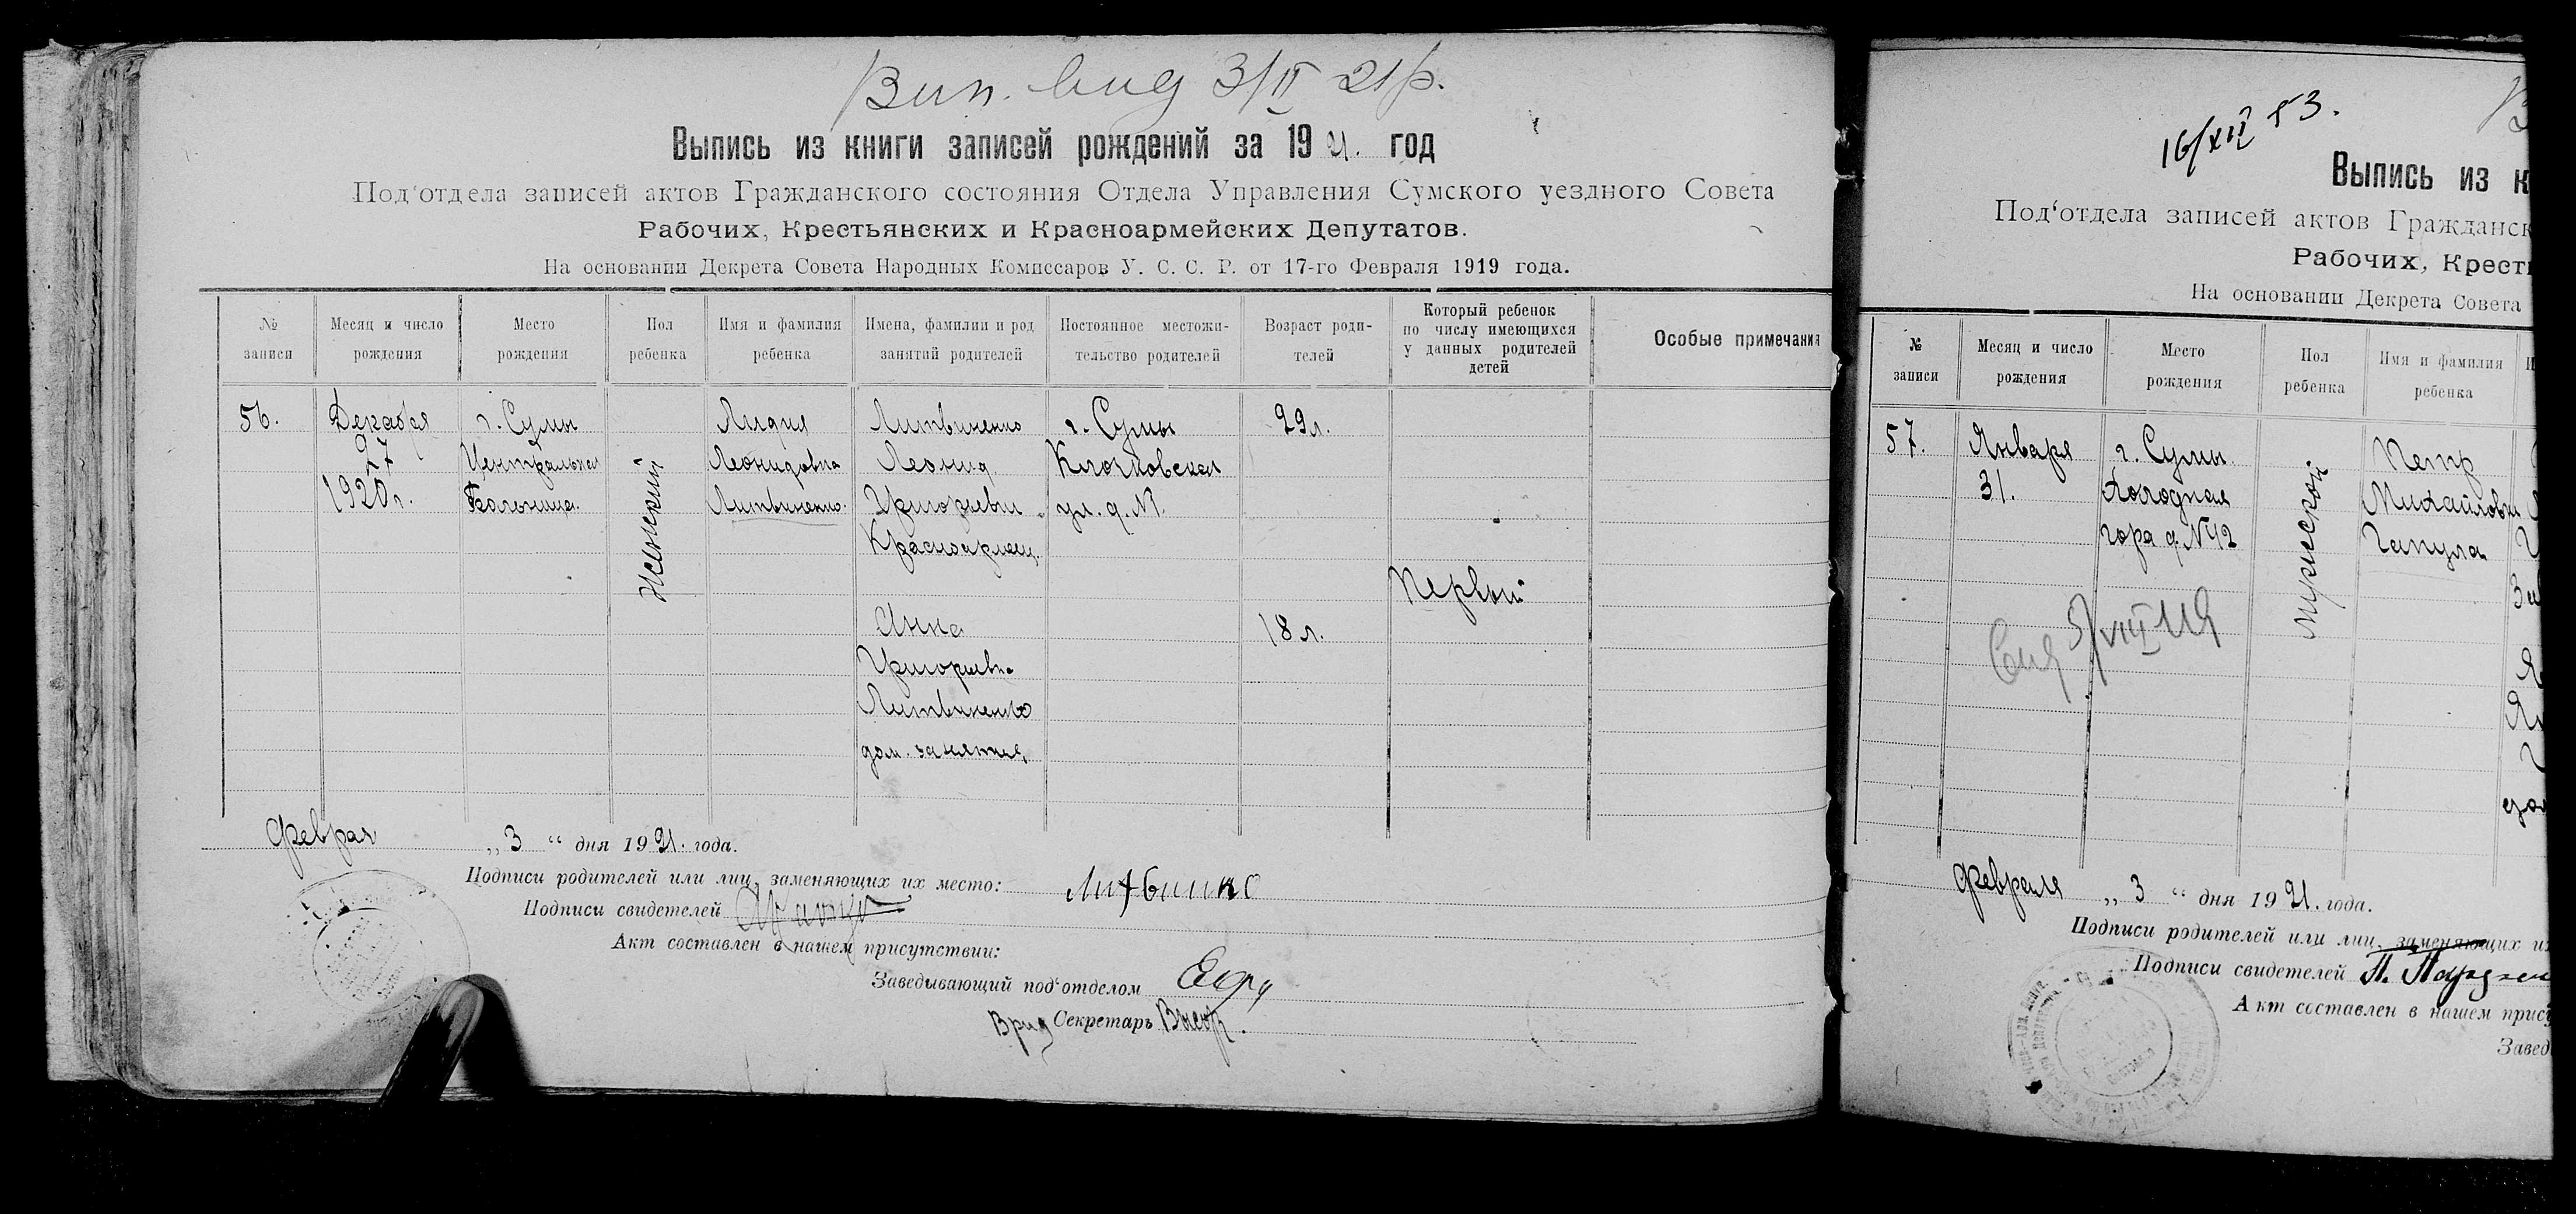 Вип. вид 3/II 21р.
Выпись из книги записей рождений за 1921. год
Под‘отдела записей актов Гражданского состояния Отдела Управления Сумского уездного Совета
Рабочих, Крестьянских и Красноармейских Депутатов.
На основании Декрета Совета Народных Комиссаров У. С. С. Р. от 17-го Февраля 1919 года.
№ записи
Месяц и число рождения
Место рождения
Пол ребенка
Имя и фамилия ребенка
Имена, фамилии и род занятий родителей
Постоянное местожительство родителей
Возраст родителей
Который ребенок по числу имеющихся у данных родителей детей
Особые примечания
56.
Декабря
27
1920 г.
г. Сумы
Центральная
Больница.
Женский
Лидия
Леонидовна
Литвиненко.
Литвиненко
Леонид
Григорьевич
Красноармеец.
Анна
Григорьевна
Литвиненко
дом. занятие,
г. Сумы
Клочковская
ул. д. №.
29 л.
18 л.
Первый
Феврал
„ 3 “ дня 1921. года.
Подписи родителей или лиц, заменяющих их место:
Подписи свидетелей
Акт составлен в нашем присутствии:
Заведывающий под‘отделом
Врид Секретарь
16/XII 53.
Выпись из к
Под‘отдела записей актов Гражданск
Рабочих, Крест
На основании Декрета Совета
№ записи
Месяц и число рождения
Место рождения
Пол ребенка
Имя и фамилия ребенка
57.
Января
31.
г. Сумы
Холодная
гора д. № 42
мужской
Петр
Михайлович
Февраля „ 3 “ дня 1921. года.
Подписи родителей или лиц, заменяющих их
Подписи свидетелей
Акт составлен в нашем прису
Завед